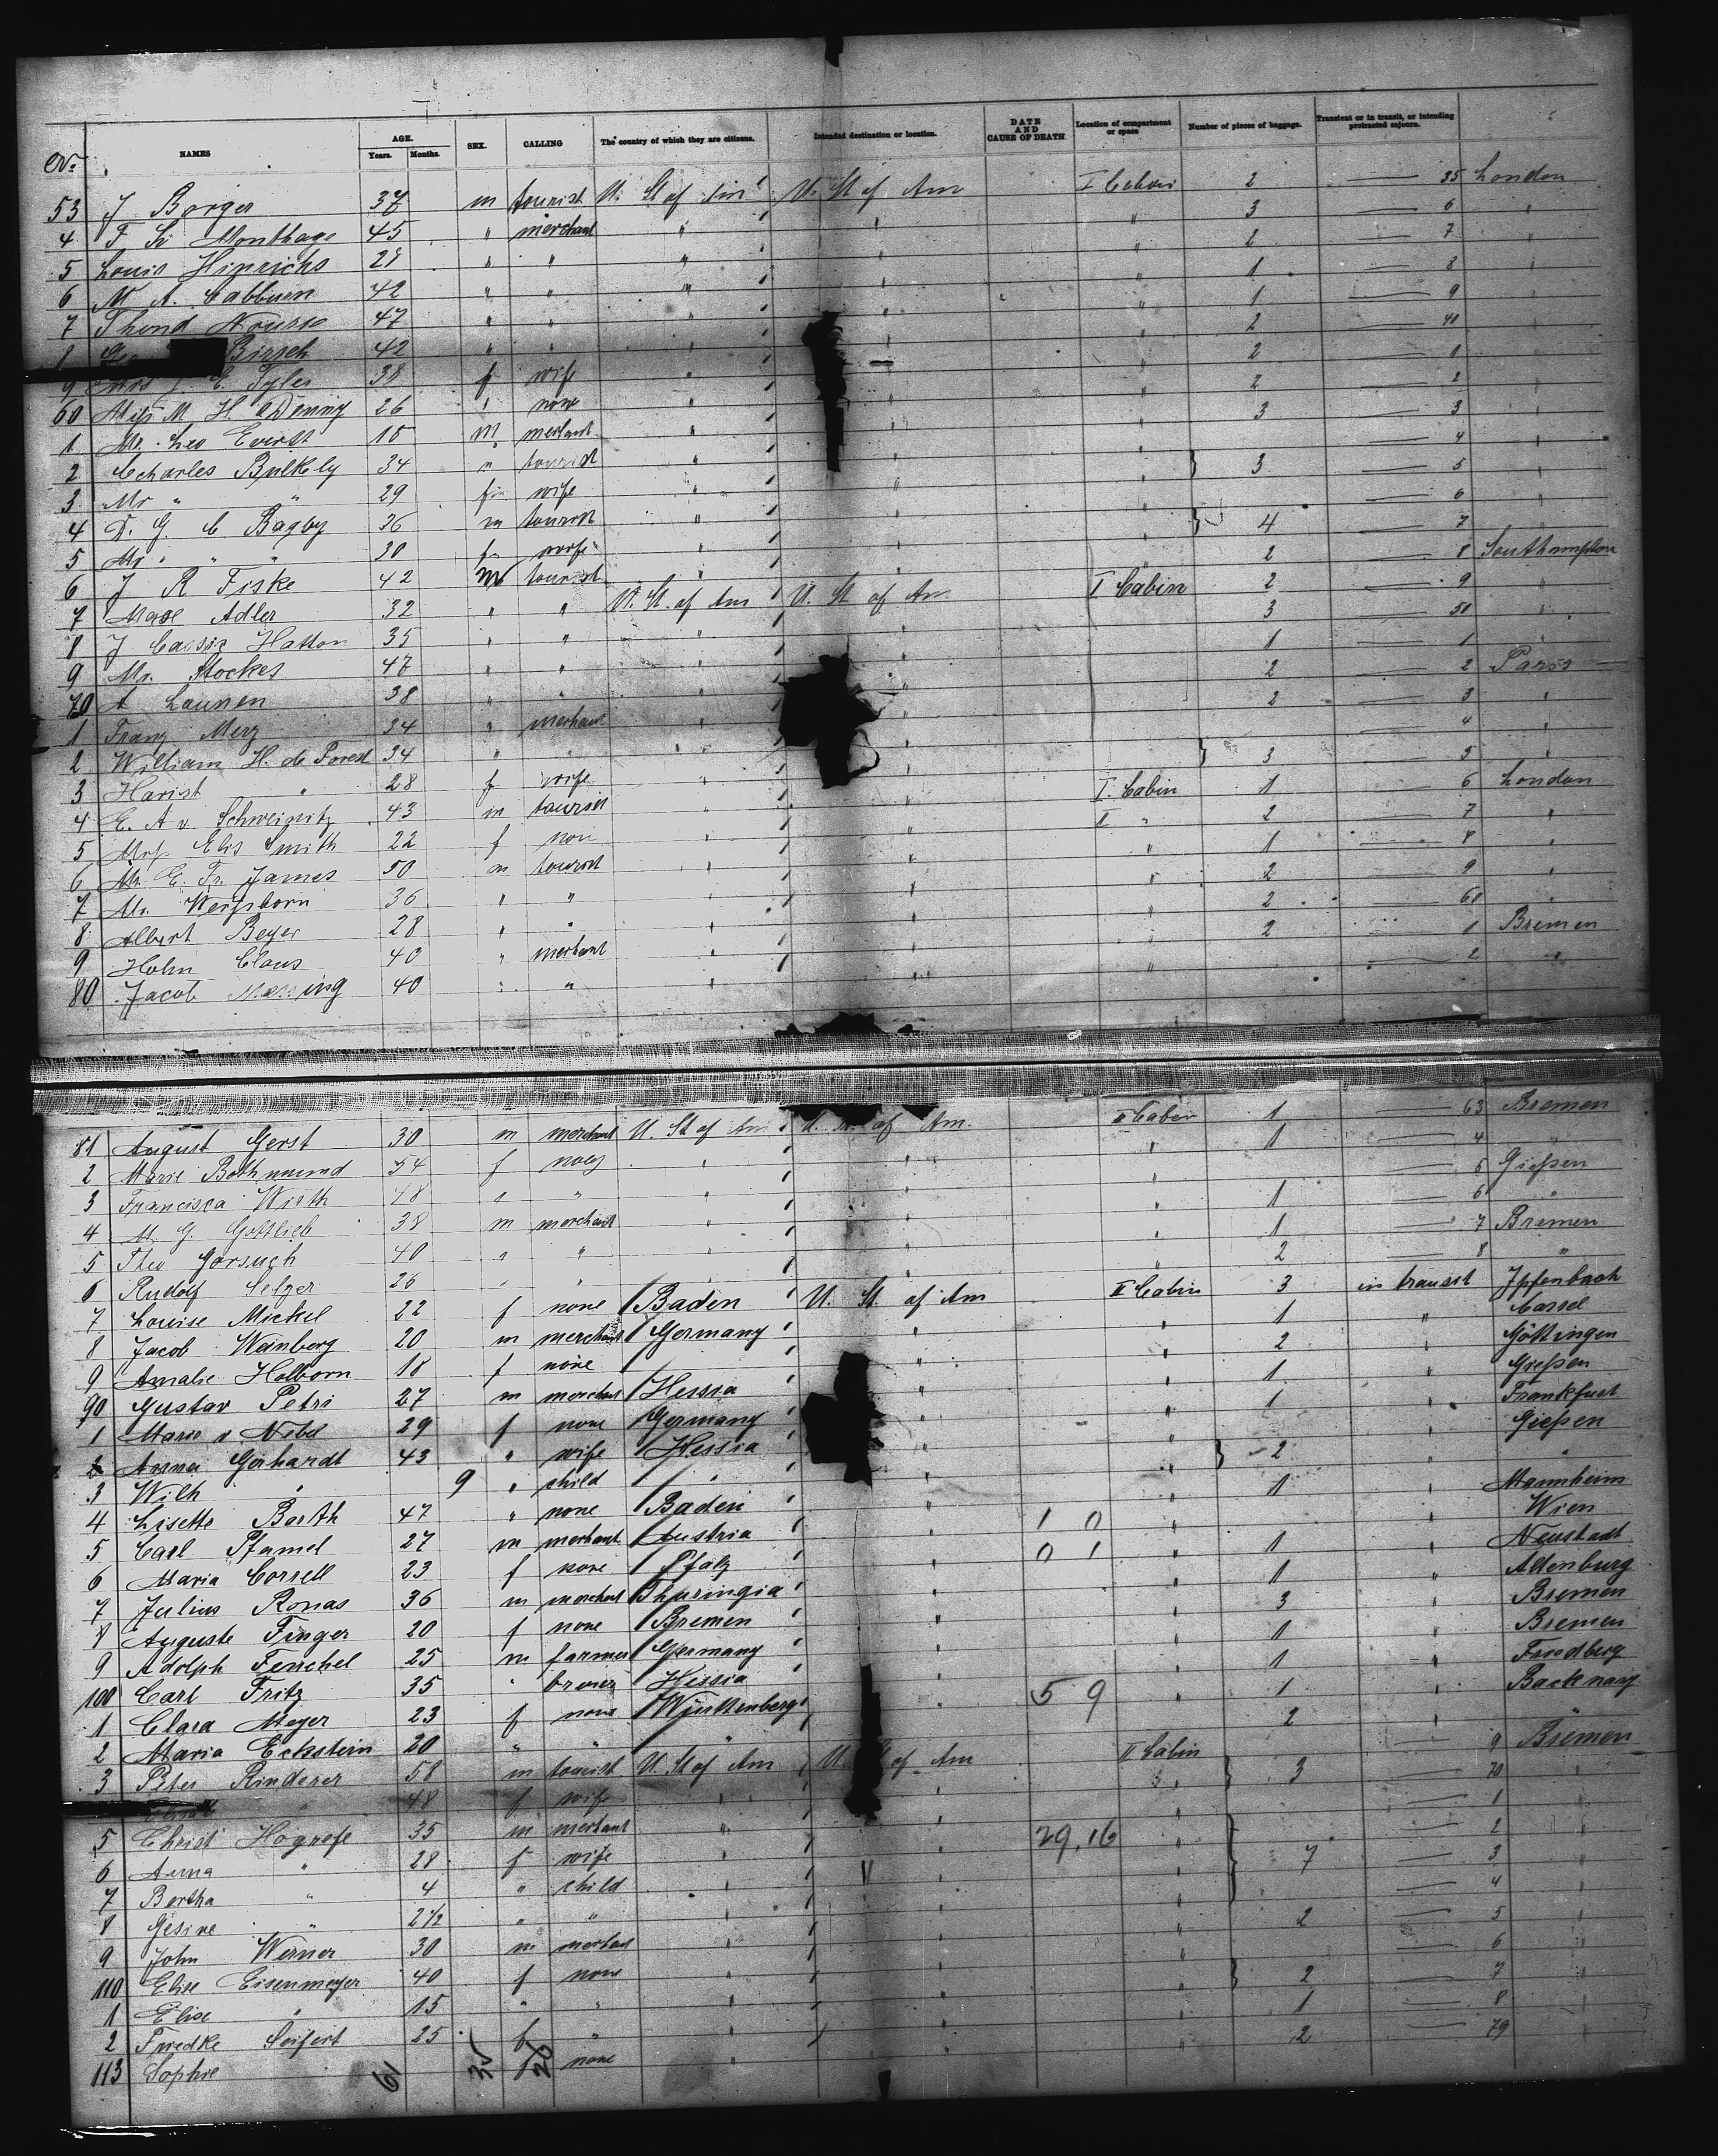 No. NAMES AGE. Years. Months. SEX. CALLING The country of which they are citizens. Intended destination or location. DATE AND CAUSE OF DEATH Location of compartment or space Number of pieces of baggage. Transient or in transit, or intending protracted sojourn.
53 J Borger 37 m tourist U. St of Am U. St of Am I Cabin 2 — 35 London
4 45 " merchant " " " 3 — 6 "
5 Louis Hinrichs 29 " " " " " 2 — 7 "
6 M A. 42 " " " " " 1 — 8 "
7 47 " " " " " 1 — 9 "
8 Birsch 42 " " " " " 2 — 40 "
9 Mrs J. C. Tyler 38 f wife " " " 2 — 1 "
60 Miss M H. Denny 26 " none " " " 2 — 2 "
1 Mr. Leo 18 m merchant " " " 3 — 3 "
2 Charles Bulkely 34 " tourist " " " } 3 — 4 "
3 Mr " " 29 f wife " " " — 5 "
4 D. G. C Bagby 36 m tourist " " " } 4 — 6 "
5 Mr " " " 20 f wife " " " — 7 "
6 J R Fiske 42 m tourist " " " 2 — 8 Southampton
7 Max Adler 32 " " U. St. of Am U. St of Am I Cabin 2 — 9 "
8 J Cassie Hatton 35 " " " " 3 — 50 "
9 Mr. Stockes 47 " " " " 1 — 1 "
70 A Launen 38 " " " " 2 — 2 Paris
1 Franz Merz 34 " merchant " " 2 — 3 "
2 William H. de Forest 34 " " " " } 3 4 "
3 Harist " 28 f wife " " 5 "
4 E. A v. Schweinitz 43 m tourist " " I. Cabin 1 6 London
5 Elis Smith 22 f non " " I " 2 7 "
6 Mr. E. Fr. James 50 m tourist " " " 1 8 "
7 Mr. 36 " " " " " 2 9 "
8 Albert Beyer 28 " " " " " 2 60 "
9 Hohn Claus 40 " merchant " " " 2 1 Bremen
80 Jacob Messing 40 " " " " " 2 "
81 August Gerst 30 m merchant U. St of Am U. St of Am. II Cabin 1 — 63 Bremen
2 Marie Bothmund 54 f " " " 1 — 4 "
3 Francisca Wirth 48 " " " " " — 5 Giessen
4 M. G. Gottlieb 38 m merchant " " " 1 — 6 "
5 Theo Gorsuch 40 " " " " " 1 — 7 Bremen
6 Rudolf Selzer 26 " " " " 2 — 8 "
7 Louise Mickel 22 f none Baden U. St. of Am II Cabin 3 in transit
8 Jacob Weinberg 20 m merchant Germany " " 1 " Cassel
9 Amalie Holborn 18 f none " " " 2 " Göttingen
90 Gustav Petri 27 m merchant Hessia " " 1 " Giessen
1 Marie v. Nebel 29 f none Germany " " 1 " Frankfurt
2 Anna Gerhardt 43 " wife Hessia " " } 2 " Giessen
3 Wilh " 9 " child " " " "
4 Lisette Barth 47 " none Baden " " 1 " Mannheim
5 Carl 27 m merchant Austria " 1 0 " " Wien
6 Maria Correll 23 f none Pfalz " 0 1 " 1 " Neustadt
7 Julius Ronas 36 m merchant Thuringia " " 1 " Altenburg
8 Auguste Finger 20 f none Bremen " " 3 " Bremen
9 Adolph Fenchel 25 m farmer Germany " " 1 " Bremen
100 Carl Fritz 35 " brewer Hessia " " 1 " Friedberg
1 Clara Meyer 23 f none Würtenberg " 5 9 " 1 " Backnang
2 Maria Eckstein 20 " " " " " 2 " "
3 Peter Rinderer 58 m tourist U. St of Am U. St of Am II Cabin } 3 9 Bremen
48 f wife " " " 70 "
5 Christ Hogrefe 35 m merchant " " " } 7 1 "
6 Anna " 28 f wife " " 29.16 " 2 "
7 Bertha " 4 " child " " " 3 "
8 Gesine " 2½ " " " " " 4 "
9 John Werner 30 m merchant " " " 2 5 "
110 Elise Eisenmeyer 40 f none " " " } 2 6 "
1 Elise " 15 " " " " " 7 "
2 Friedke Seifert 25 f " " " " 1 8 "
113 Sophie none " " " 2 79 "
61 35 26